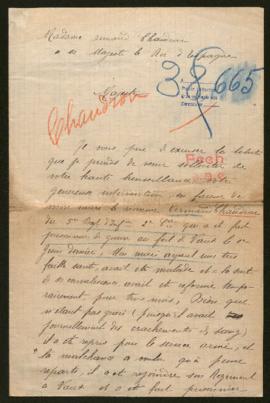 Madame Armand Chaudron
a sa Majesté le Roi d'Espagne
38/665
Majesté
Chaudron
Je vous prie d'excuser la liberté
que je prends de venir solliciter de
votre haute bienveillance, votre
généreuse intervention en faveur de
mon mari le nommé Armand Chaudron
du 5me Regt d'Infie 2e Cie qui a été fait
prisonnier de guerre au fort de Vaux le
Juin dernier, Mon mari ayant une très
faible santé, avait été malade et à la suite
de sa convalescence avait été reformé tempo-
rairement pour trois mois, Bien que
n'étant pas guéri (puisqu'il avait
journellement des crachements de sang)
il a été repris pour le service armé, et
la malchance a voulu qu'à peine
reparti, il a été rejoindre son Régiment
à Vaux et a été fait prisonnier